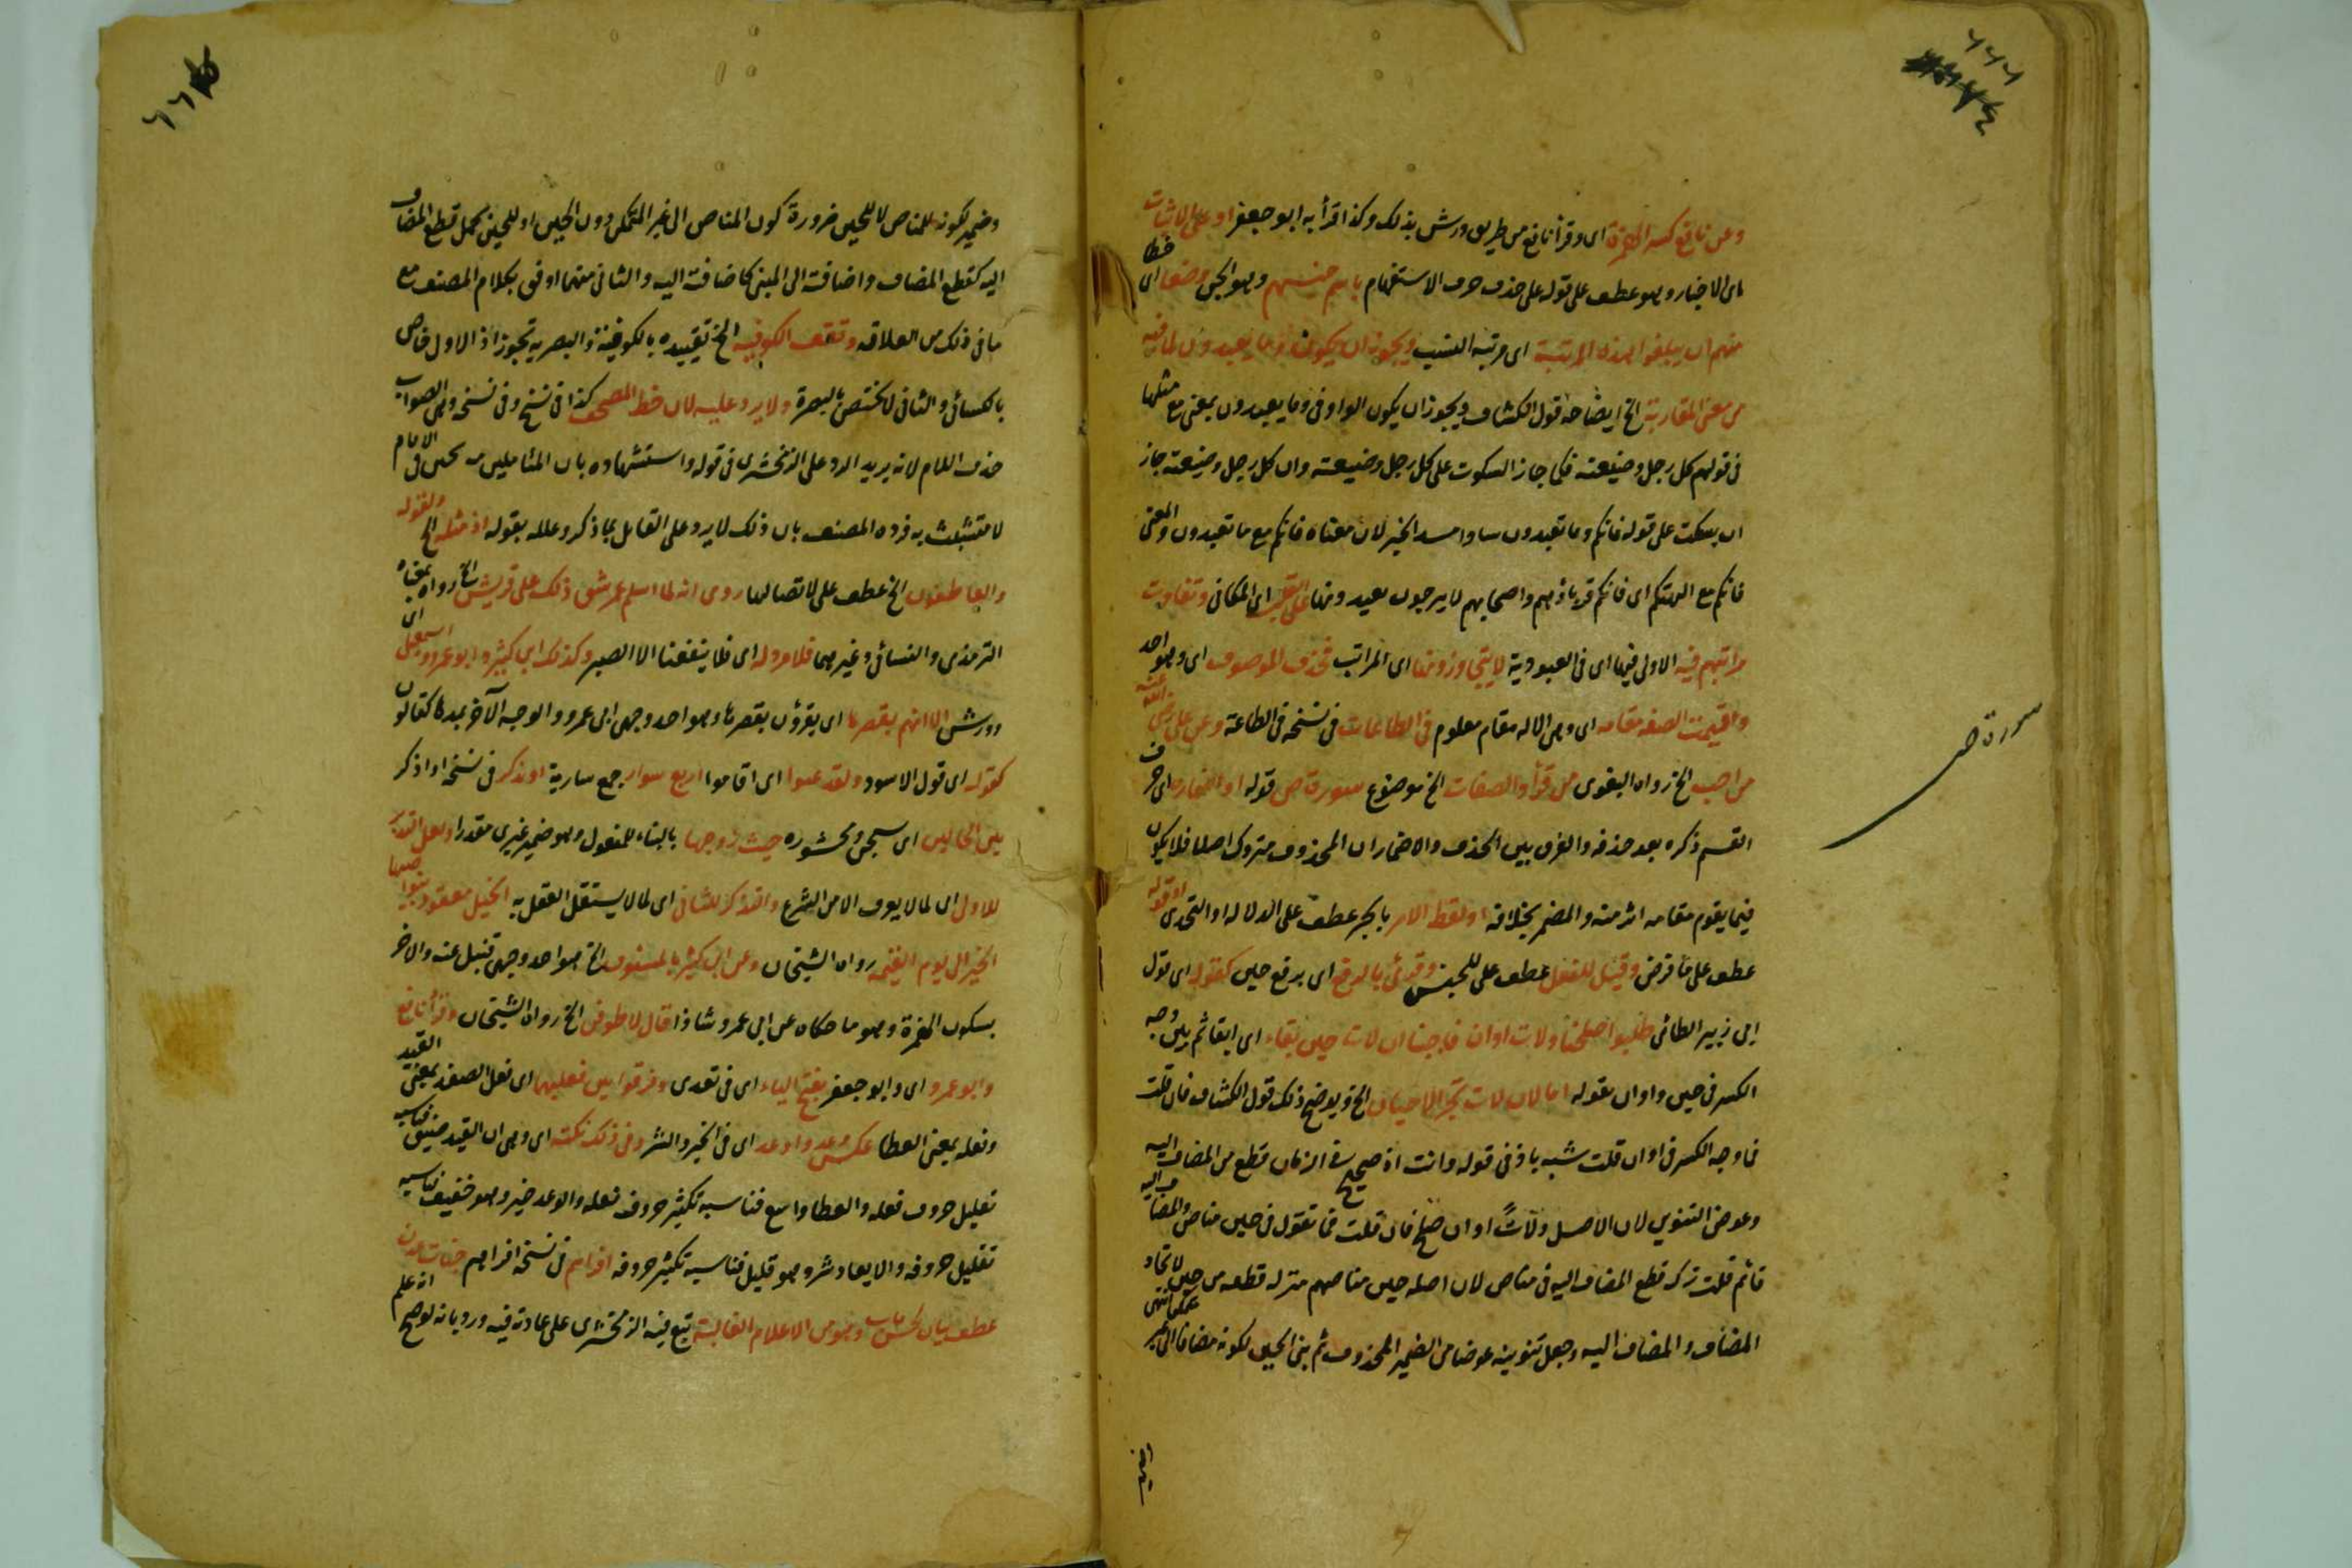 ٦٦٦
وعن نافع كسر الهمزة اى وقرأ نافع من طريق ورش بذلك وكذا قرأ به ابو جعفر او على الاثبات
اى الاخبار وهو عطف على قوله على حذف حرف الاستفهام باسم جنسهم وهو الجن وضعا اى حطا
منهم ان يبلغوا هذه المرتبة اى مرتبة النسب ويجوز ان يكون وما يعبدون لما فيه
من معنى المقارنة الخ ايضاحه قول الكشاف ويجوز ان يكون الواو فى وما يعبدون بمعنى مع مثلها
فى قولهم كل رجل وضيعته فكما جاز السكوت على كل رجل وضيعته وان كل رجل وضيعته جاز
ان يسكت على قوله فانكم وما تعبدون ساد مسد الخبر لان معناه فانكم مع ما تعبدون والمعنى
فانكم مع الهتكم اى فانكم قرناؤهم واصحابهم لا يبرحون تعبدونها على اى المكانى وتفاوت
مراتبهم فيه الاولى فيها اى فى العبودية لا يتجاوزونها اى المراتب فحذف الموصوف اى وهو احد
واقيمت الصفة مقامه اى وهى الا له مقام معلوم فى الطاعات فى نسخة فى الطاعة وعن على رضى الله عنه
من احب الخ رواه البغوى من قرأ والصفات الخ موضوع سورة ص قوله او اضمار اى حرف
القسم ذكره بعد حذفه والفرق بين الحذف والاضمار ان المحذوف متروك اصلا فلا يكون
فيما يقوم مقامه اثر منه والمضمر بخلافه او لفظ الامر بالجر عطف على الدلالة او التحدى او قوله
عطف على ما فرض وقيل للفعل عطف على للجنس وقرئ بالرفع اى برفع حين كقوله اى قول
ابى زبيد الطائى طلبوا صلحنا ولات اوان فاجبنا ان لات حين بقاء اى ابقاء ثم بين وجه
الكسر فى حين واوان بقوله اما لان لات تجر الاحيان الخ ويوضح ذلك قول الكشاف فان قلت
فما وجه الكسر فى اوان قلت شبه باذ فى قوله وانت اذ صحيح فى ان زمان قطع من المضاف اليه
وعوض التنوين لان الاصل ولات اوان صلح فان قلت فما تقول فى حين مناص والمضاف اليه
قائم قلت نزل قطع المضاف اليه فى مناص لان اصله حين مناصهم منزلة قطعه من حين لاتحاد
المضاف والمضاف اليه وجعل تنوينه عوضا من الضمير المحذوف ثم بنى الحين لكونه مضافا الى غير متمكن انتهى
سورة ص
وضمير لكونه للمناص لا للحين ضرورة كون المناص الى غير المتمكن دون الحين او للحين بجعل قطع المضاف
اليه كقطع المضاف واضافته الى المبنى كاضافته اليه والثانى منهما اوفق بكلام المصنف مع
ما فى ذلك من العلاقة وتقف الكوفية الخ تقييده بالكوفية والبصرية تجوز اذ الاول خاص
بالكسائى والثانى لا يختص بالبصرة ولا يرد عليه لان خط المصحف كذا فى نسخ وفى نسخة وهى الصواب
حذف اللام لانه يريد الرد على الزمخشرى فى قوله واستشهاده بان التاء ملتزقة بحين فى الامام
لا متشبث به فرده المصنف بان ذلك لا يرد على القائل بما ذكر وعلله بقوله اذ مثله الخ ولقوله
والعاطفون الخ عطف على لاتصالها روى انه لما اسلم عمر شق ذلك على قريش الخ رواه بمعناه
الترمذى والنسائى وغيرهما فلا مرد له اى فلا ينفعنا الا الصبر وكذلك ابن كثير وابو عمرو اى
وورش الا انهم بقصرها اى يقرؤن بقصرها وهو احد وجهى ابى عمرو والوجه الآخر بمدها كقالون
كقوله اى قول الاسود ولقد غنوا اى اقاموا اربع سوار جمع سارية او نذكر فى نسخة او اذكر
بين الحالين اى يسبحن ومحشورة حيث زوجها بالبناء للمفعول وهو ضمير غيرى مقدرا ولعل التعبير
للاول اى لما لا يعرف الا من الشرع والتذكر للثانى اى لما لا يستقل العقل به الخيل معقود بنواصيها
الخير الى يوم القيمة رواه الشيخان وعن ابن كثير بالسئوق الخ هو احد وجهى قنبل عنه والاخر
بسكون الهمزة وهو ما حكاه عن ابى عمرو شاذا قال لاطوفن الخ رواه الشيخان وقرأ نافع
وابو عمرو اى وابو جعفر بفتح الياء اى فى بعدى وفرقوا بين فعليهما اى فعل الصفد بمعنى القيد
وفعله بمعنى العطا عكس وعد واوعد اى فى الخير والشر وفى ذلك نكتة اى وهى ان القيد ضيق فناسبه
تقليل حروف فعله والعطا واسع فناسبه تكثير حروف فعله والوعد خير وهو خفيف فناسبه
تقليل حروفه والايعاد شر وهو قليل فناسبه تكثير حروفه اقرانهم فى نسخة اقرانهم جنات عدن
عطف بيان لحسن مآب وهو من الاعلام الغالبة تبع فيه الزمخشرى على عادته فيه ورد بانه لو صح انه علم